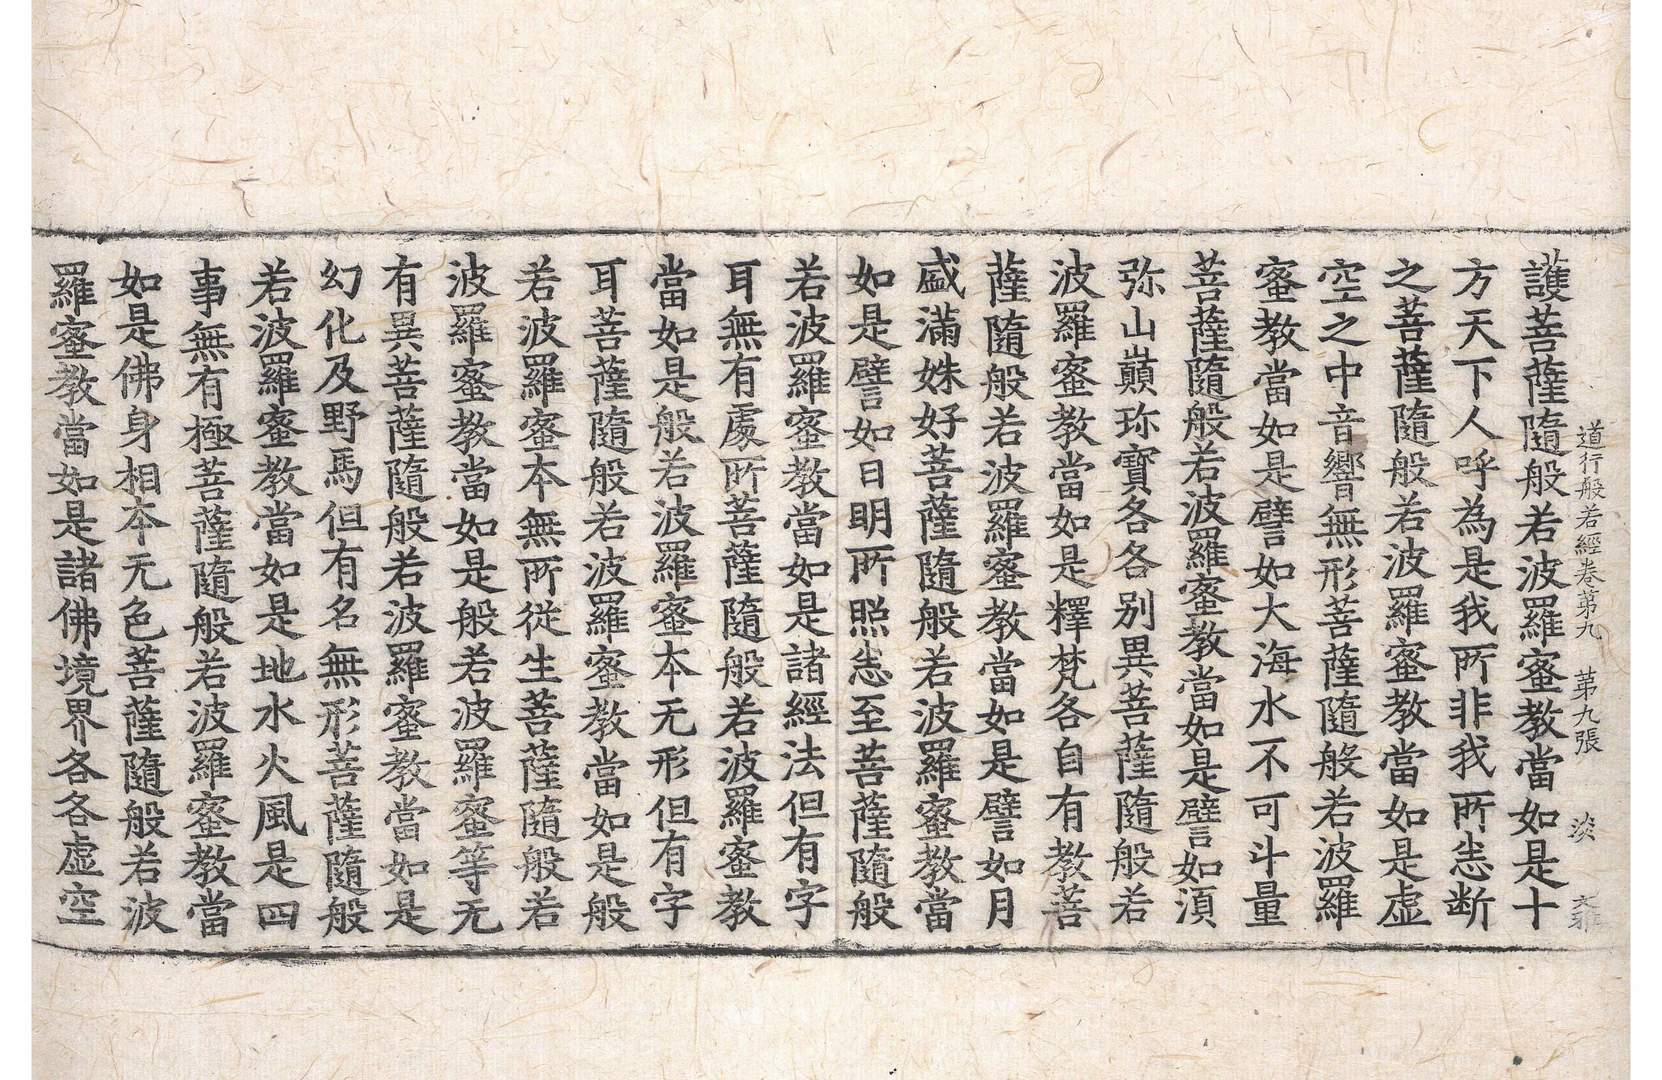 道行般若經卷第九 第九張 淡
護菩薩隨般若波羅蜜教當如是十
方天下人呼為是我所非我所悉断
之菩薩隨般若波羅蜜教當如是虛
空之中音響無形菩薩隨般若波羅
蜜教當如是譬如大海水不可斗量
菩薩隨般若波羅蜜教當如是譬如湏
弥山巔珎寶各各別異菩薩隨般若
波羅蜜教當如是釋梵各自有教菩
薩隨般若波羅蜜教當如是譬如月
盛滿姝好菩薩隨般若波羅蜜教當
如是譬如日明所照悉至菩薩隨般
若波羅蜜教當如是諸經法但有字
耳無有處所菩薩隨般若波羅蜜教
當如是般若波羅蜜本无形但有字
耳菩薩隨般若波羅蜜教當如是般
若波羅蜜本無所從生菩薩隨般若
波羅蜜教當如是般若波羅蜜等无
有異菩薩隨般若波羅蜜教當如是
幻化及野馬但有名無形菩薩隨般
若波羅蜜教當如是地水火風是四
事無有極菩薩隨般若波羅蜜教當
如是佛身相本无色菩薩隨般若波
羅蜜教當如是諸佛境界各各虛空